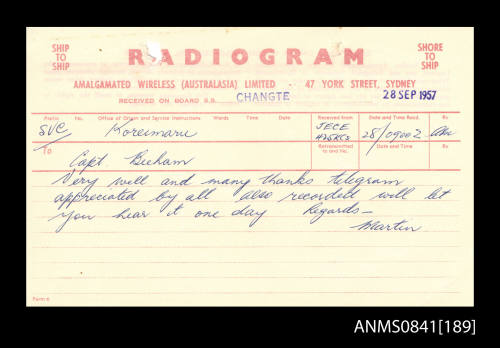 SHIP TO SHIP
RADIOGRAM
SHORE TO SHIP
AMALGAMATED WIRELESS (AUSTRALASIA) LIMITED - 47 YORK STREET, SYDNEY
RECEIVED ON BOARD S.S. CHANGTE 28 SEP 1957
Prefix No. Office of Origin and Service Instructions Words Time Date Received from Date and Time Recd. By
SVC Koreimaru JECE 28/0900Z
H25KCS Retransmitted to and No. Date and Time By
TO Capt Beeham
Very well and many thanks telegram
appreciated by all also recorded will let
you hear it one day Regards -
Martin
Form 6
ANMS0841[189]